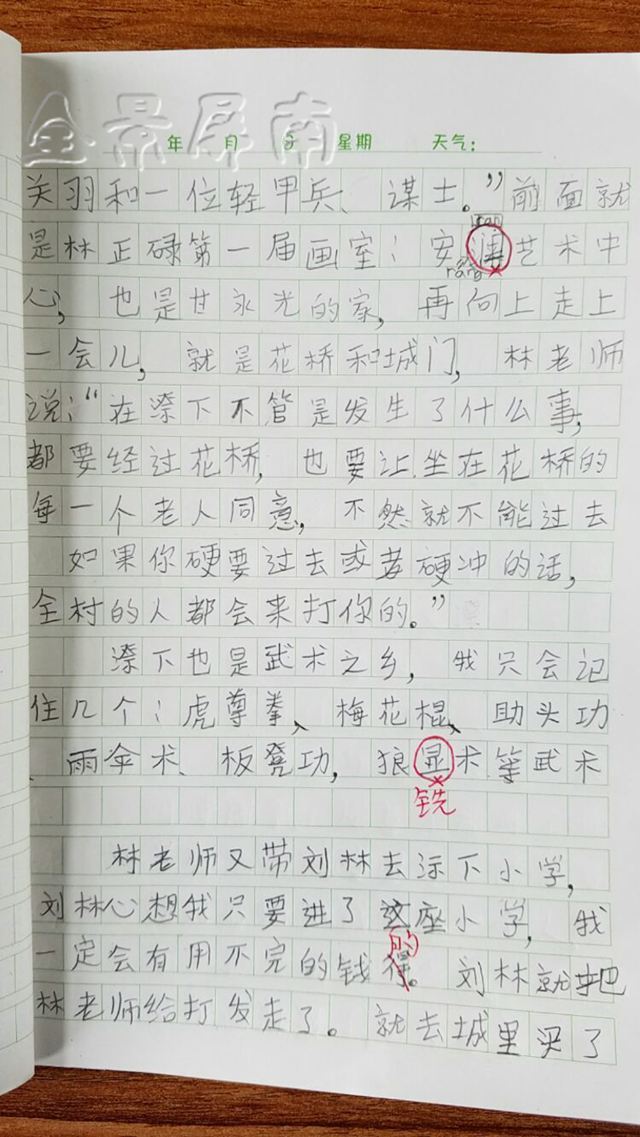 全景屏南
年 月 日 星期 天气:
关羽和一位轻甲兵、谋士。”前面就
是林正碌第一届画室:安润艺术中
rang
心,也是甘永光的家,再向上走上
一会儿,就是花桥和城门,林老师
说:“在漈下不管是发生了什么事,
都要经过花桥,也要让坐在花桥的
每一个老人同意,不然就不能过去
如果你硬要过去或者硬冲的话,
全村的人都会来打你的。”
漈下也是武术之乡,我只会记
住几个:虎尊拳、梅花棍、助头功
、雨伞术、板凳功,狼显术等武术
铣
林老师又带刘林去漈下小学,
刘林心想我只要进了这座小学,我
的
一定会有用不完的钱得。刘林就把
林老师给打发走了。就去城里买了